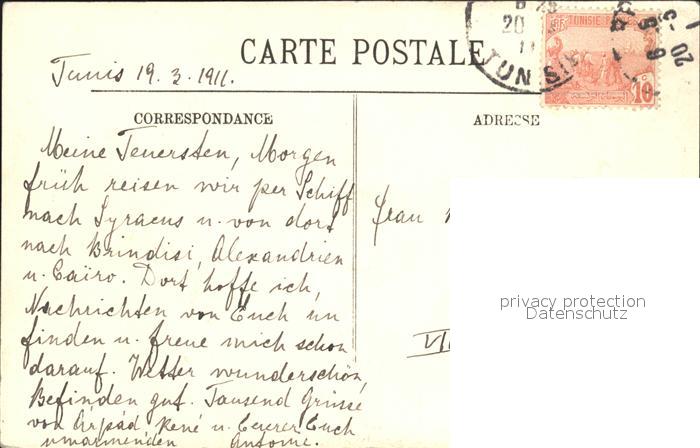 CARTE POSTALE
TUNISIE
Tunis 19. 3. 1911.
CORRESPONDANCE
ADRESSE
Meine Teuersten, Morgen
früh reisen wir per Schiff
nach Syracus u. von dort
nach Brindisi, Alexandrien
u. Caïro. Dort hoffe ich,
Nachrichten von Euch
finden u. freue mich schon
darauf. Wetter wunderschön,
Befinden gut. Tausend Grüsse
von Árpád René u. Euerer Euch
umarmenden Antonie.
Frau
VII
10
privacy protection
Datenschutz